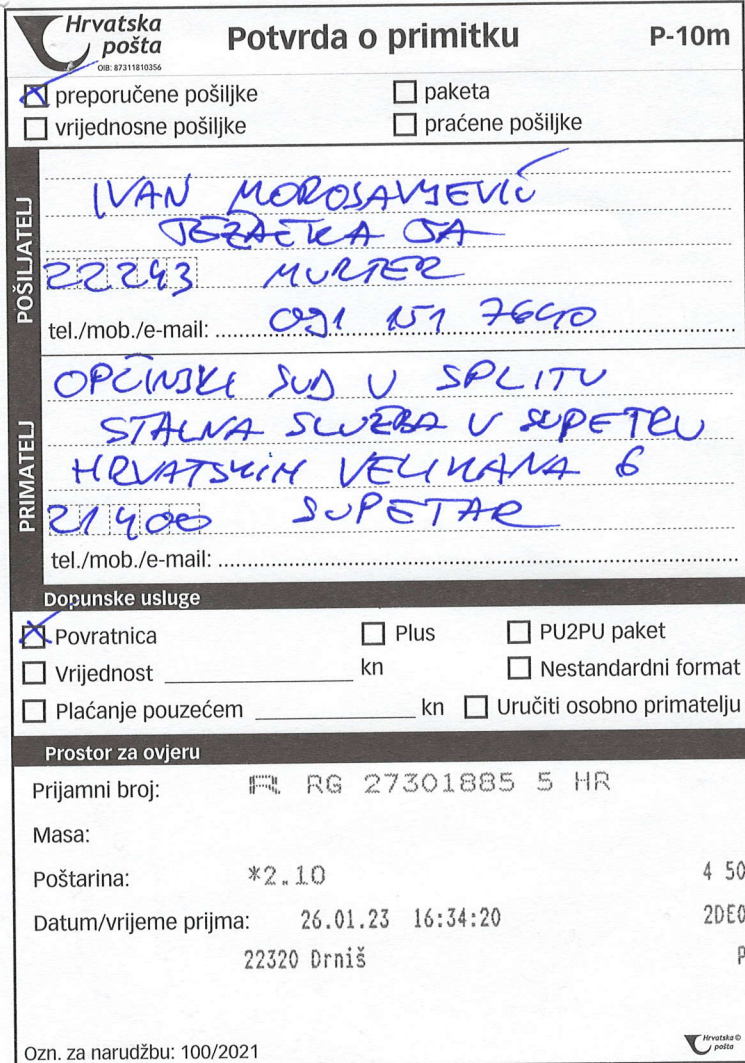 Hrvatska pošta
OIB: 87311810356
Potvrda o primitku
P-10m
preporučene pošiljke
paketa
vrijednosne pošiljke
praćene pošiljke
POŠILJATELJ
IVAN
22243 MURTER
tel./mob./e-mail: 091 151 7640
PRIMATELJ
OPĆINSKI SUD U SPLITU
STALNA SLUŽBA U SUPETRU
HRVATSKIH VELIKANA 6
21400 SUPETAR
tel./mob./e-mail:
Dopunske usluge
Povratnica
Plus
PU2PU paket
Vrijednost kn
Nestandardni format
Plaćanje pouzećem kn
Uručiti osobno primatelju
Prostor za ovjeru
Prijamni broj: R RG 27301885 5 HR
Masa:
Poštarina: *2.10 4 50
Datum/vrijeme prijma: 26.01.23 16:34:20 2DE0
22320 Drniš P
Ozn. za narudžbu: 100/2021
Hrvatska pošta